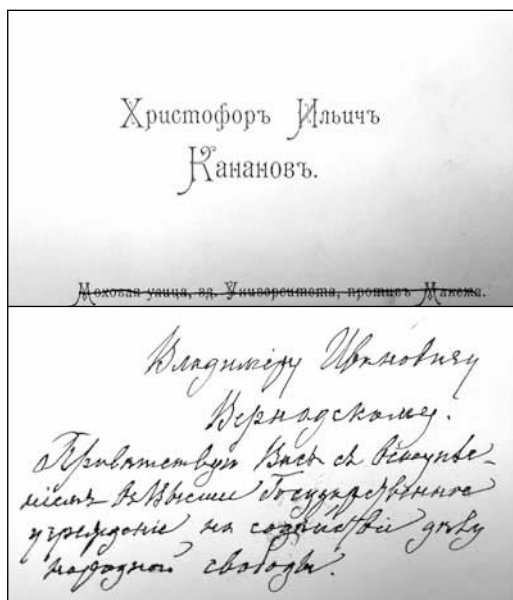 Христофоръ Ильичъ
Канановъ.
Моховая улица, зд. Университета, противъ Манежа.
Владиміру Ивановичу
Вернадскому.
Привѣтствую Васъ съ вступле-
ніемъ въ Высшее Государственное
учрежденіе на содѣйствіе дѣлу
народной свободы.